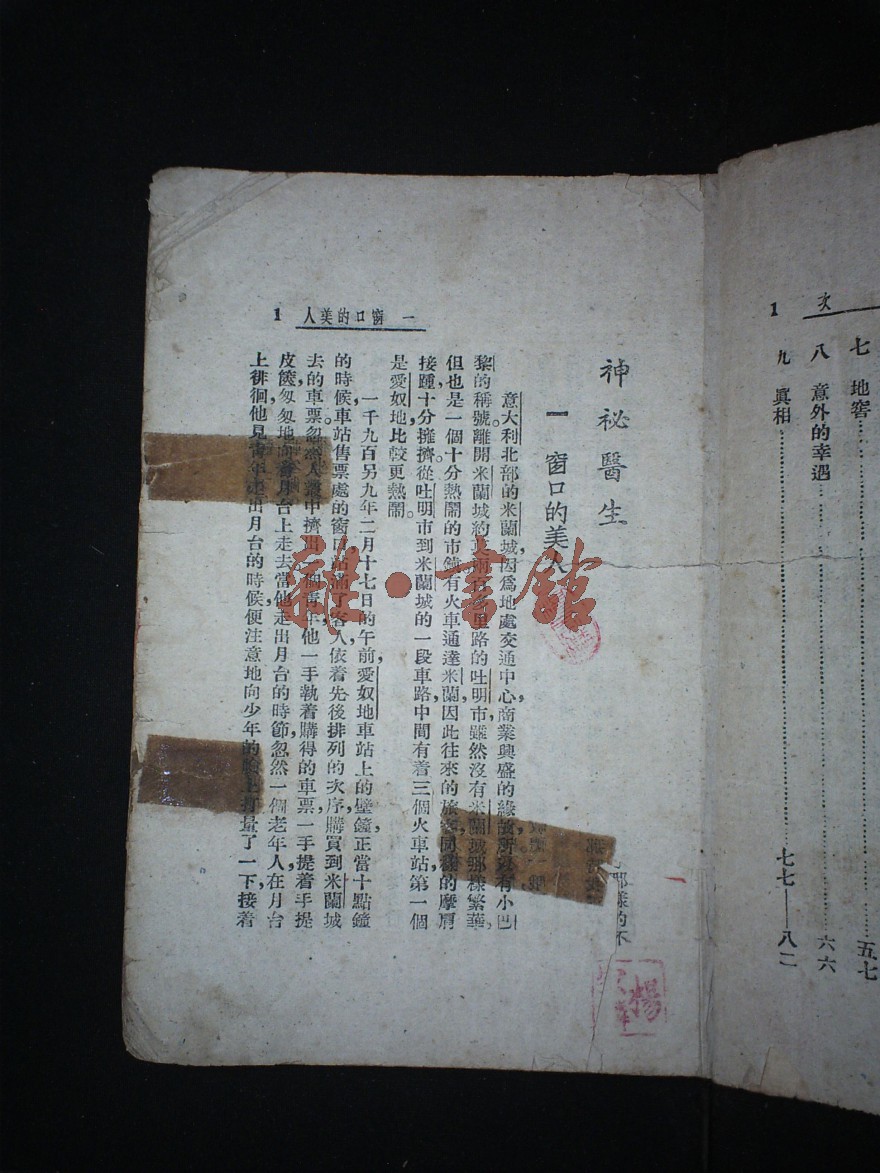 次 1
七 地窖……五七
八 意外的幸遇……六六
九 眞相……七七—八二
一 窗口的美人 1
神祕醫生
一 窗口的美人
意大利北部的米蘭城，因爲地處交通中心，商業興盛的緣故，所以有小巴
黎的稱號。離開米蘭城約莫兩百多里路的吐明市，雖然沒有米蘭城那樣繁華，
但也是一個十分熱鬧的市鎮，有火車通達米蘭，因此往來的旅客，同樣的摩肩
接踵，十分擁擠。從吐明市到米蘭城的一段車路，中間有着三個火車站，第一個
是愛奴地，比較更熱鬧。
一千九百另九年二月十七日的午前，愛奴地車站上的壁鐘，正當十點鐘
的時候，車站售票處的窗口，站滿了客人，依着先後排列的次序，購買到米蘭城
去的車票。忽然人叢中擠出一個靑年，他一手執着購得的車票，一手提着手提
皮篋，匆匆地向着月台上走去。當他走出月台的時節，忽然一個老年人在月台
上徘徊，他見靑年走出月台的時候，便注意地向少年的臉上打量了一下，接着
那樣的不
楊
雜·書館